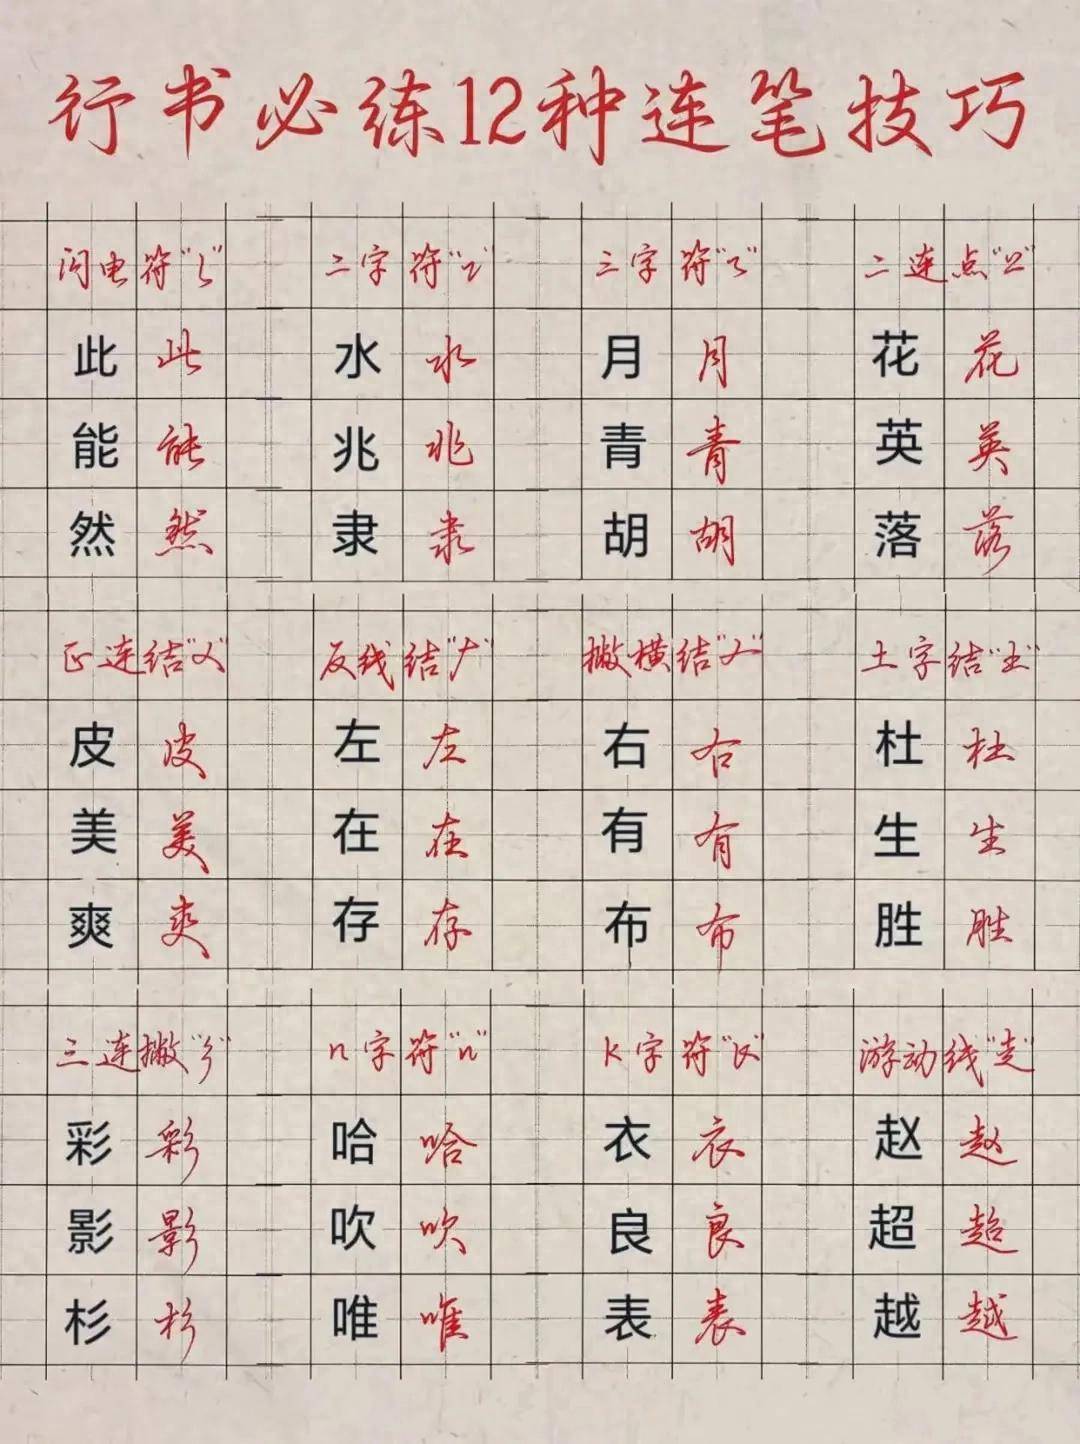 行书必练12种连笔技巧
闪电符"ㄣ" 二字符"z" 三字符"3" 二连点"ㄩ"
此 此 水 水 月 月 花 花
能 能 兆 兆 青 青 英 英
然 然 隶 隶 胡 胡 落 落
正连结 反线结 撇横结 土字结"土"
皮 皮 左 左 右 右 杜 杜
美 美 在 在 有 有 生 生
爽 爽 存 存 布 布 胜 胜
三连撇 n字符"n" K字符"K" 游动线"走"
彩 彩 哈 哈 衣 衣 赵 赵
影 影 吹 吹 良 良 超 超
杉 杉 唯 唯 表 表 越 越